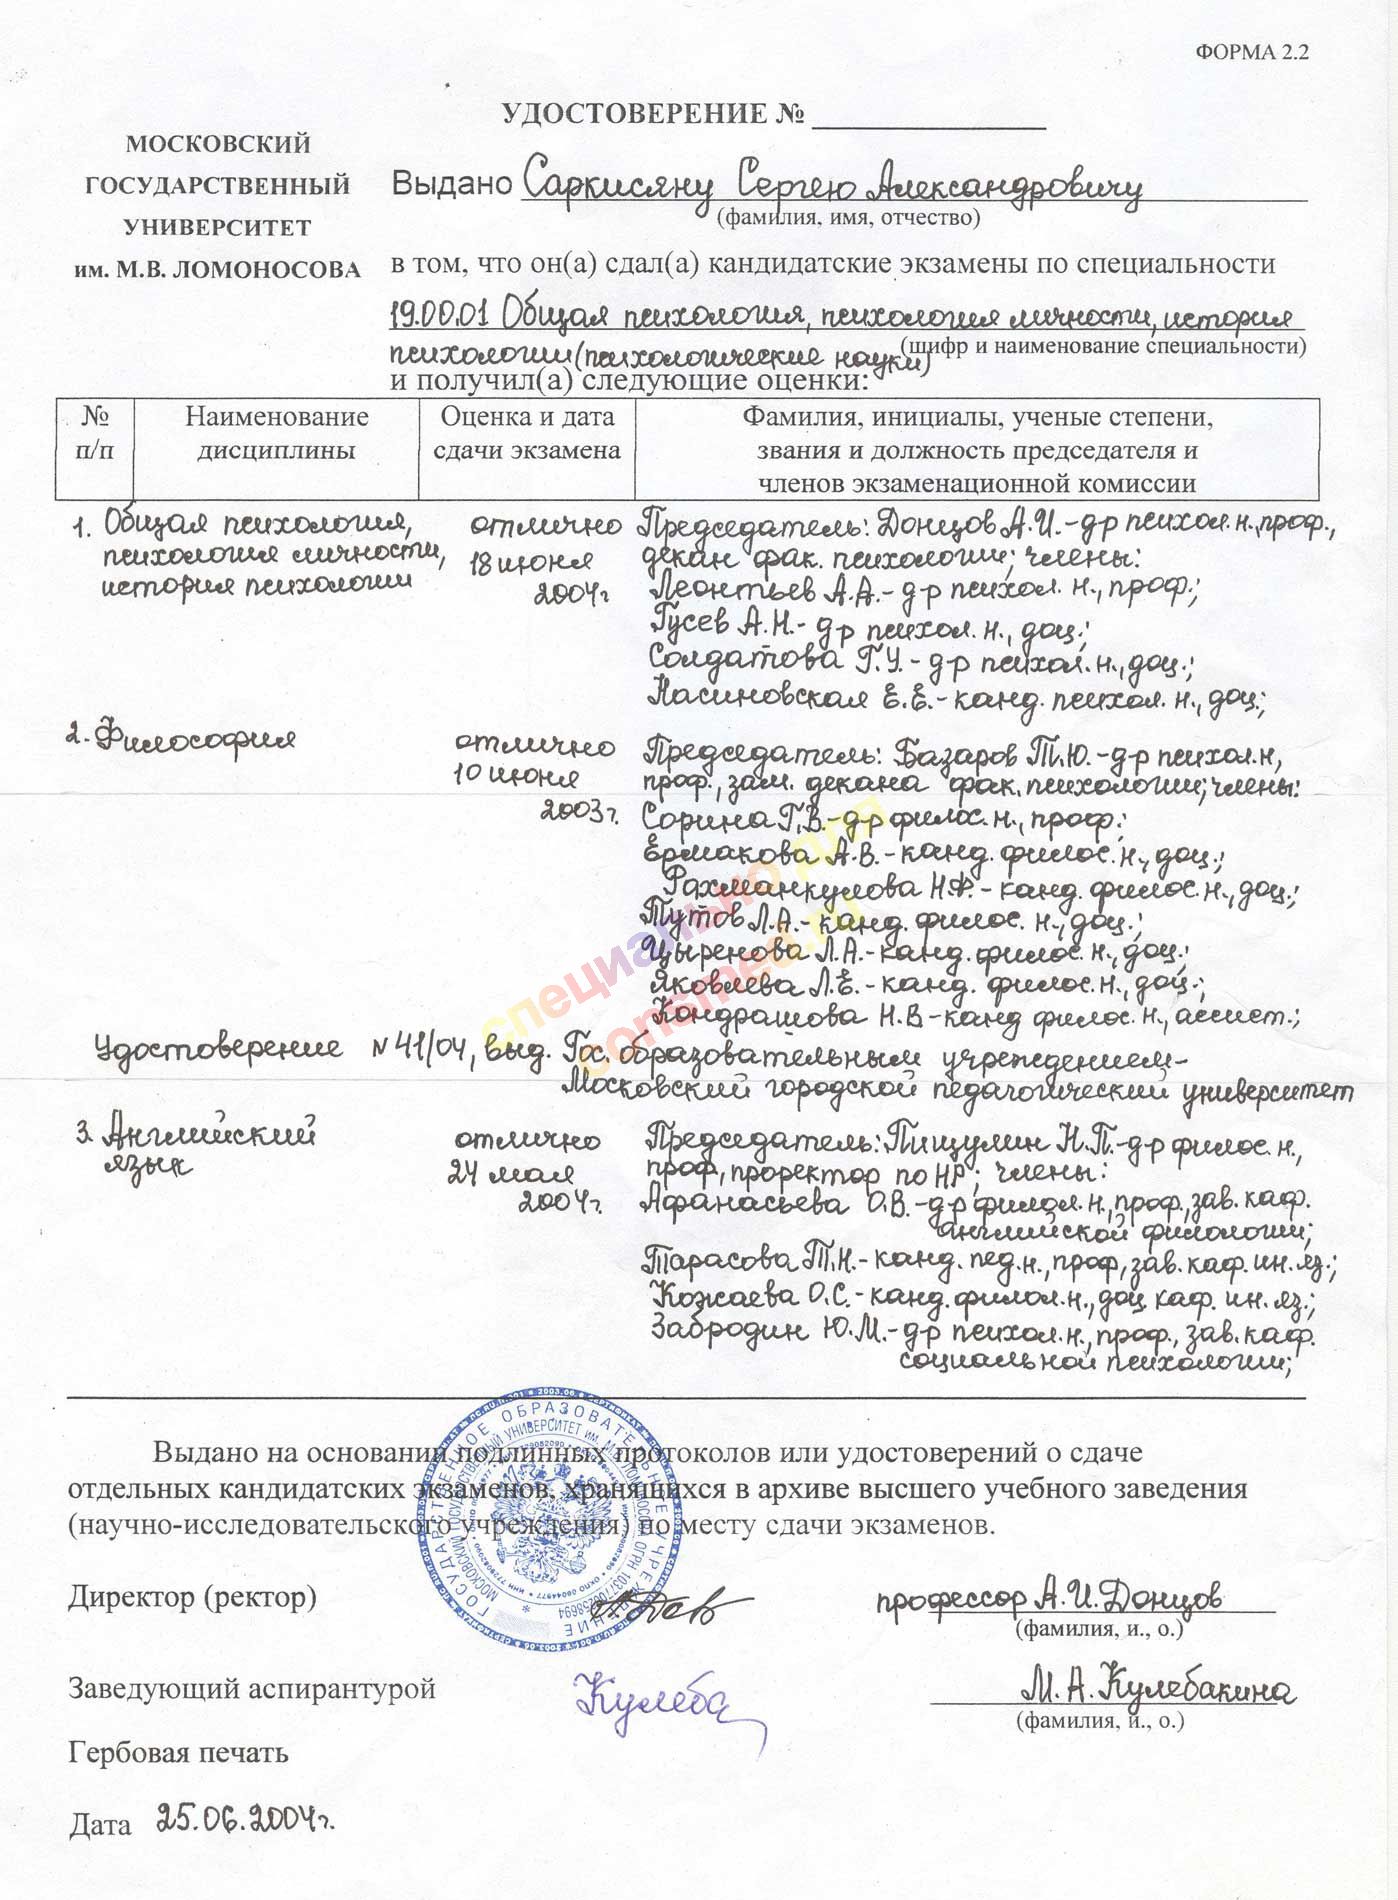 ФОРМА 2.2
УДОСТОВЕРЕНИЕ №
МОСКОВСКИЙ
ГОСУДАРСТВЕННЫЙ
УНИВЕРСИТЕТ
им. М.В. ЛОМОНОСОВА
Выдано Саркисяну Сергею Александровичу
(фамилия, имя, отчество)
в том, что он(а) сдал(а) кандидатские экзамены по специальности
19.00.01 Общая психология, психология личности, история
(шифр и наименование специальности)
психологии (психологические науки)
и получил(а) следующие оценки:
№ п/п
Наименование дисциплины
Оценка и дата сдачи экзамена
Фамилия, инициалы, ученые степени,
звания и должность председателя и
членов экзаменационной комиссии
1. Общая психология,
психология личности,
история психологии
отлично
18 июня
2004г
Председатель: Донцов А.И.-д-р психол.н., проф.,
декан фак. психологии; члены:
Леонтьев А.А.- д-р психол. н., проф.;
Гусев А.Н.- д-р психол. н., доц.;
Солдатова Г.У.- д-р психол. н., доц.;
Насиновская Е.Е.-канд. психол. н., доц.;
2. Философия
отлично
10 июня
2003г.
Председатель: Базаров Т.Ю.-д-р психол.н,
проф., зам. декана фак. психологии; члены:
Сорина Г.В.-д-р филос. н., проф.;
Ермакова А.В.-канд. филос. н., доц.;
Рахманкулова Н.Ф.- канд. филос. н., доц.;
Тутов Л.А.- канд. филос. н., доц.;
Цыренова Л.А.-канд. филос. н., доц.;
Яковлева Л.Е.-канд. филос. н., доц.;
Кондрашова Н.В-канд филос. н., ассист.;
специально для
consmed.ru
Удостоверение N41/04, выд. Гос. образовательным учреждением-
Московский городской педагогический университет
3. Английский
язык
отлично
24 мая
2004г.
Председатель: Пищулин Н.П.-д-р филос. н.,
проф, проректор по НР; члены:
Афанасьева О.В.-д-р филол. н., проф., зав. каф.
английской филологии;
Тарасова Т.Н.-канд. пед.н., проф, зав. каф. ин. яз.;
Кожаева О.С.-канд. филол.н., доц каф. ин. яз.;
Забродин Ю.М.-д-р психол.н., проф., зав. каф.
социальной психологии;
Выдано на основании подлинных протоколов или удостоверений о сдаче
отдельных кандидатских экзаменов, хранящихся в архиве высшего учебного заведения
(научно-исследовательского учреждения) по месту сдачи экзаменов.
ГОСУДАРСТВЕННОЕ ОБРАЗОВАТЕЛЬНОЕ УЧРЕЖДЕНИЕ
МОСКОВСКИЙ ГОСУДАРСТВЕННЫЙ УНИВЕРСИТЕТ им. М.В. ЛОМОНОСОВА ОГРН 1037700258694
Директор (ректор)
профессор А.И.Донцов
(фамилия, и., о.)
Заведующий аспирантурой
Кулеба
М.А.Кулебакина
(фамилия, и., о.)
Гербовая печать
Дата 25.06.2004г.